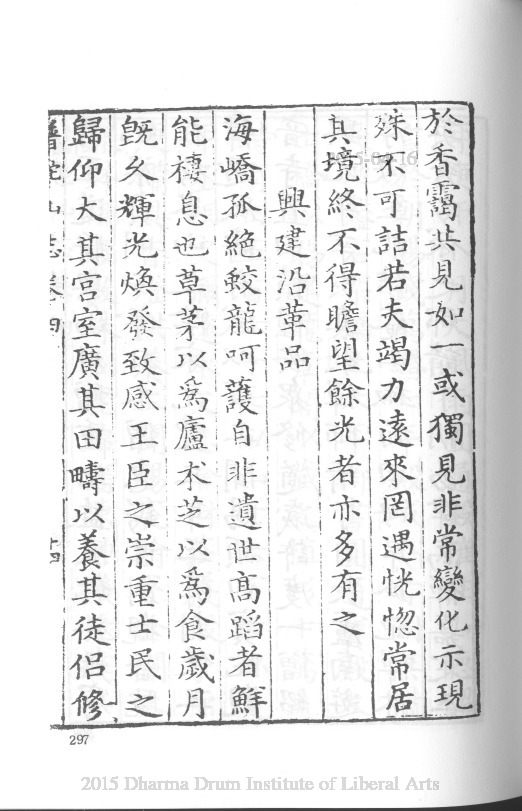 於香靄共見如一或獨見非常變化示現
殊不可詰若夫竭力遠來罔遇恍惚常居
其境終不得瞻望餘光者亦多有之
興建沿革品
海嶠孤絶鮫龍呵護自非遺世高蹈者鮮
能棲息也草茅以爲廬朮芝以爲食歲月
既久輝光煥發致感王臣之崇重士民之
歸仰大其宫室廣其田疇以養其徒侣修
普陀山志卷四
十四
297
2015 Dharma Drum Institute of Liberal Arts